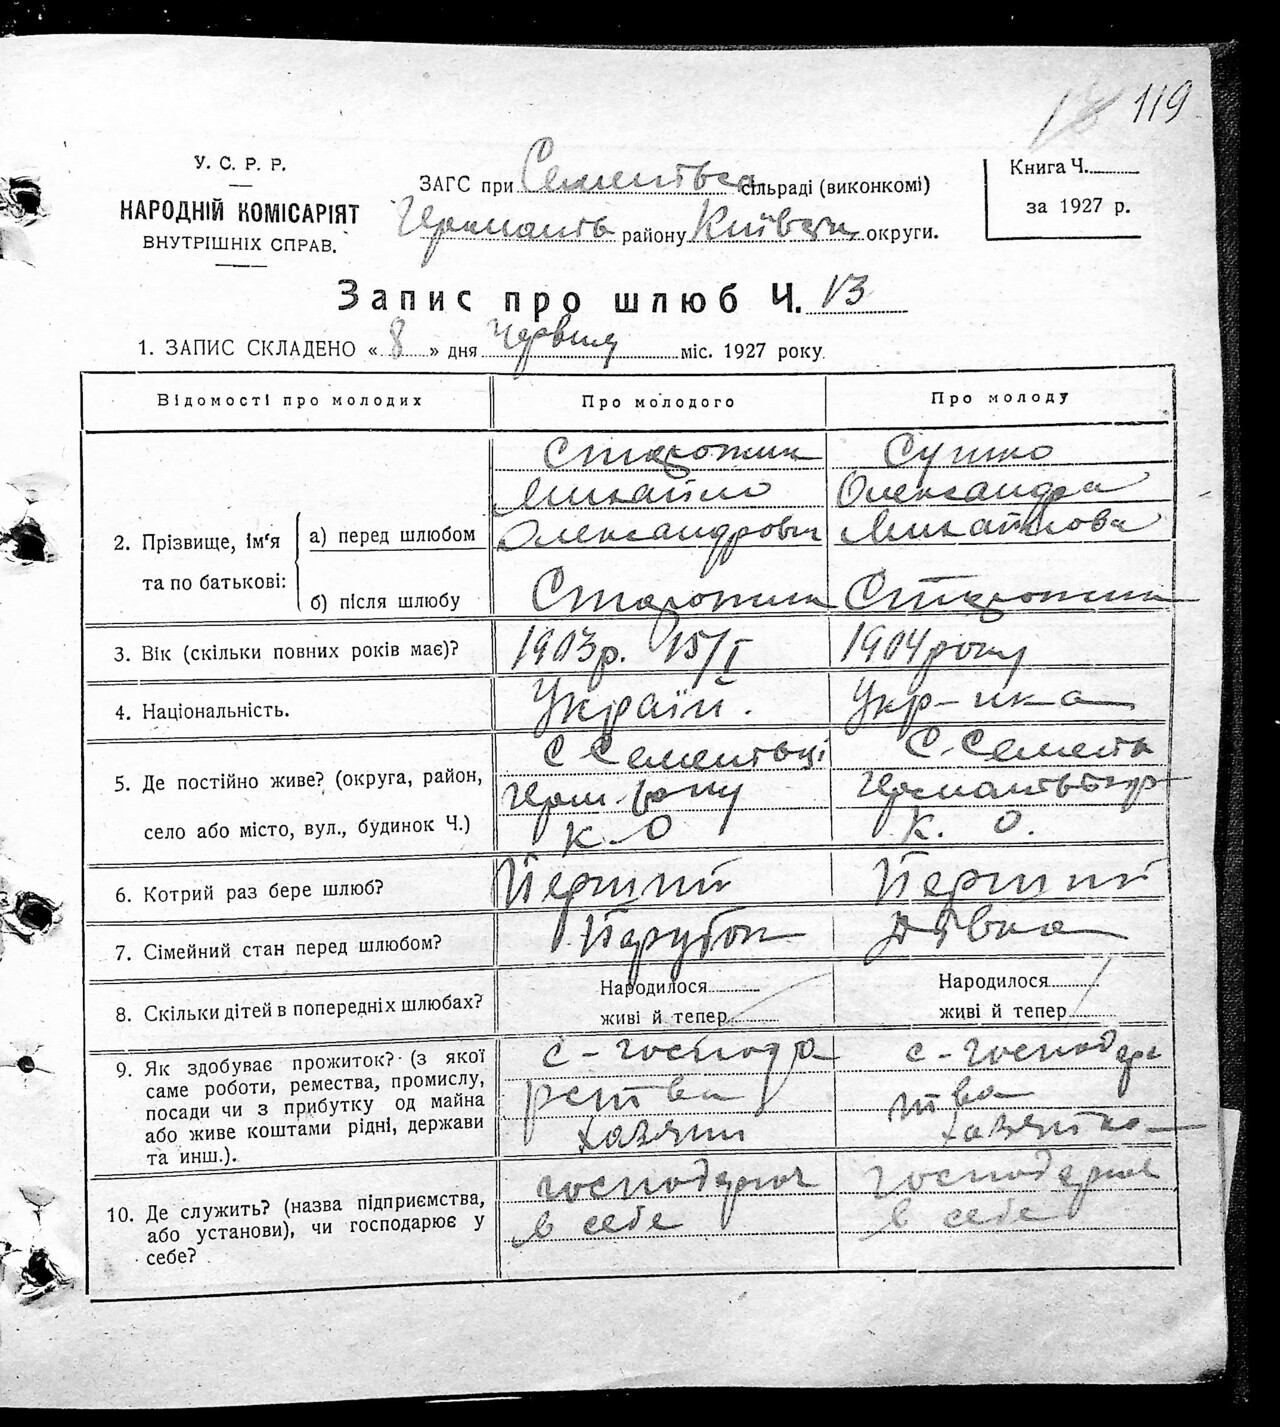 18 119
У. С. Р. Р.
НАРОДНІЙ КОМІСАРІЯТ
ВНУТРІШНІХ СПРАВ.
ЗАГС при сільраді (виконкомі)
району округи.
Книга Ч.
за 1927 р.
Запис про шлюб Ч. 13
1. ЗАПИС СКЛАДЕНО « 8 » дня Червня міс. 1927 року
Відомості про молодих Про молодого Про молоду
2. Прізвище, ім'я та по батькові:
а) перед шлюбом
Сушко
Михайло Олександра
Олександрович Михайлова
б) після шлюбу
3. Вік (скільки повних років має)? 1903 р. 15/I 1904 року
4. Національність. Україн. Укр-нка
5. Де постійно живе? (округа, район,
село або місто, вул., будинок Ч.)
К. О К. О.
6. Котрий раз бере шлюб? Перший Перший
7. Сімейний стан перед шлюбом? Парубок Дівка
8. Скільки дітей в попередніх шлюбах?
Народилося Народилося
живі й тепер живі й тепер
9. Як здобуває прожиток? (з якої
саме роботи, ремества, промислу,
посади чи з прибутку од майна
або живе коштами рідні, держави
та инш.).
с-господа с-господар
рства тва
хазяин хазяйка
10. Де служить? (назва підприємства,
або установи), чи господарює у
себе?
господарює господарює
в себе в себе